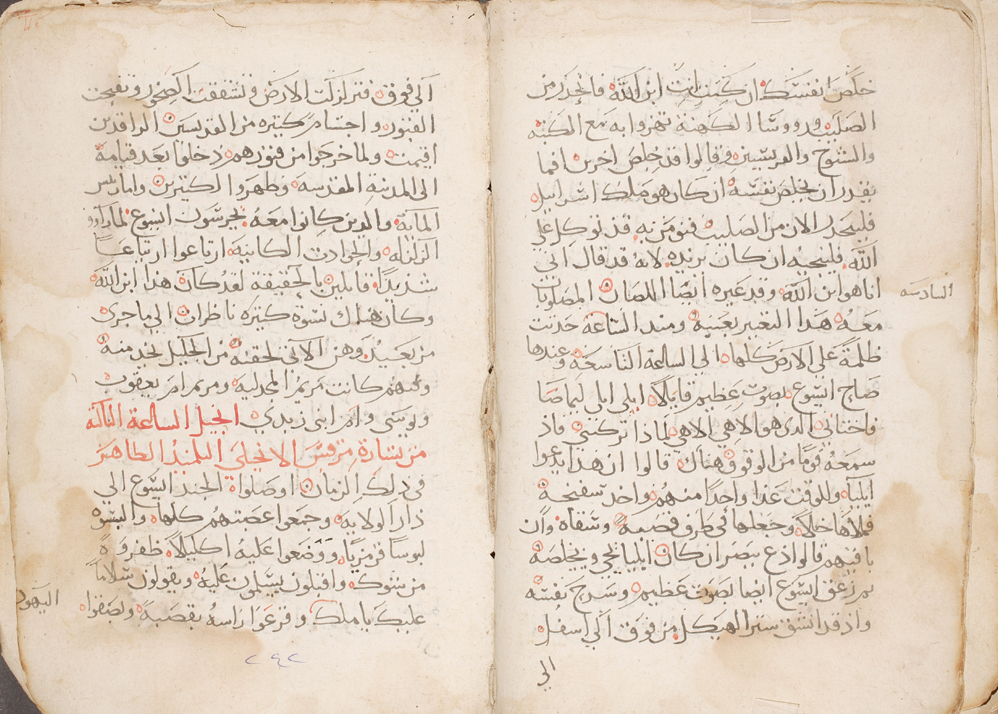 خلص نفسك ان كنت انت ابن الله فانحدر من
الصليب ورووسا الكهنة تهزوا به مع الكتبه
والشيوخ والفريسين وقالوا قد خلص اخرين افما
يقدر ان يخلص نفسه ان كان هو ملك اسراييل
فلينحدر الان من الصليب فنومن به قد توكل علي
الله فلينجيه ان كان يريده لانه قد قال اني
انا هو ابن الله وقد عيره ايضا اللصان المصلوبان
السادسه
معه هذا التعيير بعينه ومند الساعة حدثت
ظلمة علي الارض كلها الي الساعة التاسعة وعندها
صاح ايسوع بصوت عظيم قايلا ايلي ايلي ليماصا
فاختاني الدي هو الاهي الاهي لماذا تركتني واذ
سمعه قوما من الوقوف هناك قالوا ان هدا يدعوا
ايليا وللوقت غدا واحدا منهم واخد سفنجة
فملاها خلا وجعلها في طرف قصبة وسقاه وان
باقيهم قالوا دع ننصر ان كان ايليا يجي ويخلصه
ثم زعق ايسوع ايضا بصوت عظيم وسرح نفسه
واذ قد انشق ستر الهيكل من فوق الي اسفل
الي
الي فوق فتزلزلت الارض وتشققت الصخور وتفتحت
القبور واجسام كتيره من القديسين الراقدين
اقيمت ولما خرجوا من قبورهم دخلوا بعد قيامة
الي المدينة المقدسه وظهروا لكتيرين واما ريس
الماية والدين كانوا معه يحرسون ايسوع لما راوا
الزلزله والحوادث الكاينة ارتاعوا ارتياعا
شديدا قايلين بالحقيقة لقد كان هدا ابن الله
وكان هناك نسوة كتيره ناظرات الي ما جري
من بعيد وهن الاتي لحقنه من الجليل يخدمنه
ومنهم كانت مريم المجدلية ومريم ام يعقوب
ويوسي وام ابني زبدي انجيل الساعة التالتة
من بشارة مرقس الانجلي التلميذ الطاهر
في دلك الزمان اوصلوا الجند ايسوع الي
دار الولايه وجمعوا عصبتهم كلها والبسوه
لبوسا قرمزيا ووضعوا عليه اكليلا ظفروه
من شوك واقبلون يسلمون عليه ويقولون سلاما
اليهود
عليك يا ملك وقرعوا راسه بقصبة وبصقوا
٢٩٢